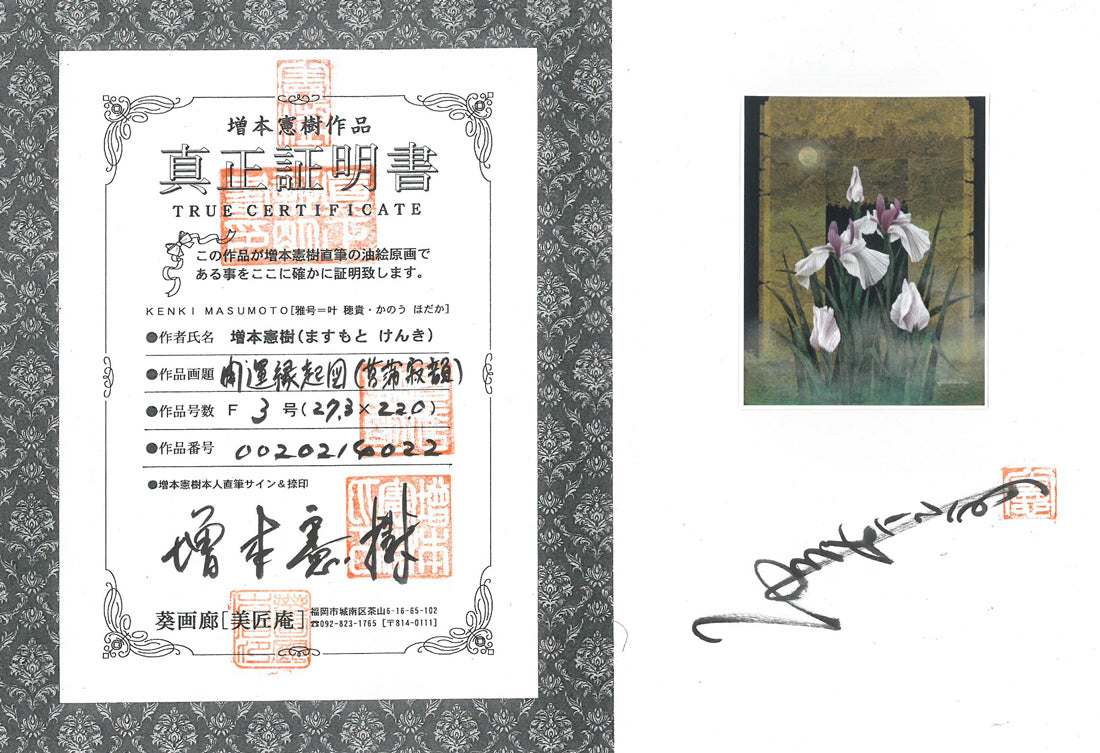 増本憲樹作品
真正証明書
TRUE CERTIFICATE
この作品が増本憲樹直筆の油絵原画で
ある事をここに確かに証明致します。
KENKI MASUMOTO[雅号＝叶 穂貴・かのう ほだか]
●作者氏名 増本憲樹(ますもと けんき)
●作品画題 開運縁起図(菖蒲寂韻)
●作品号数 F 3 号(27.3×22.0)
●作品番号
●増本憲樹本人直筆サイン＆捺印
増本憲樹
葵画廊[美匠庵]
福岡市城南区茶山6-16-65-102
☎092-823-1765 [〒814-0111]